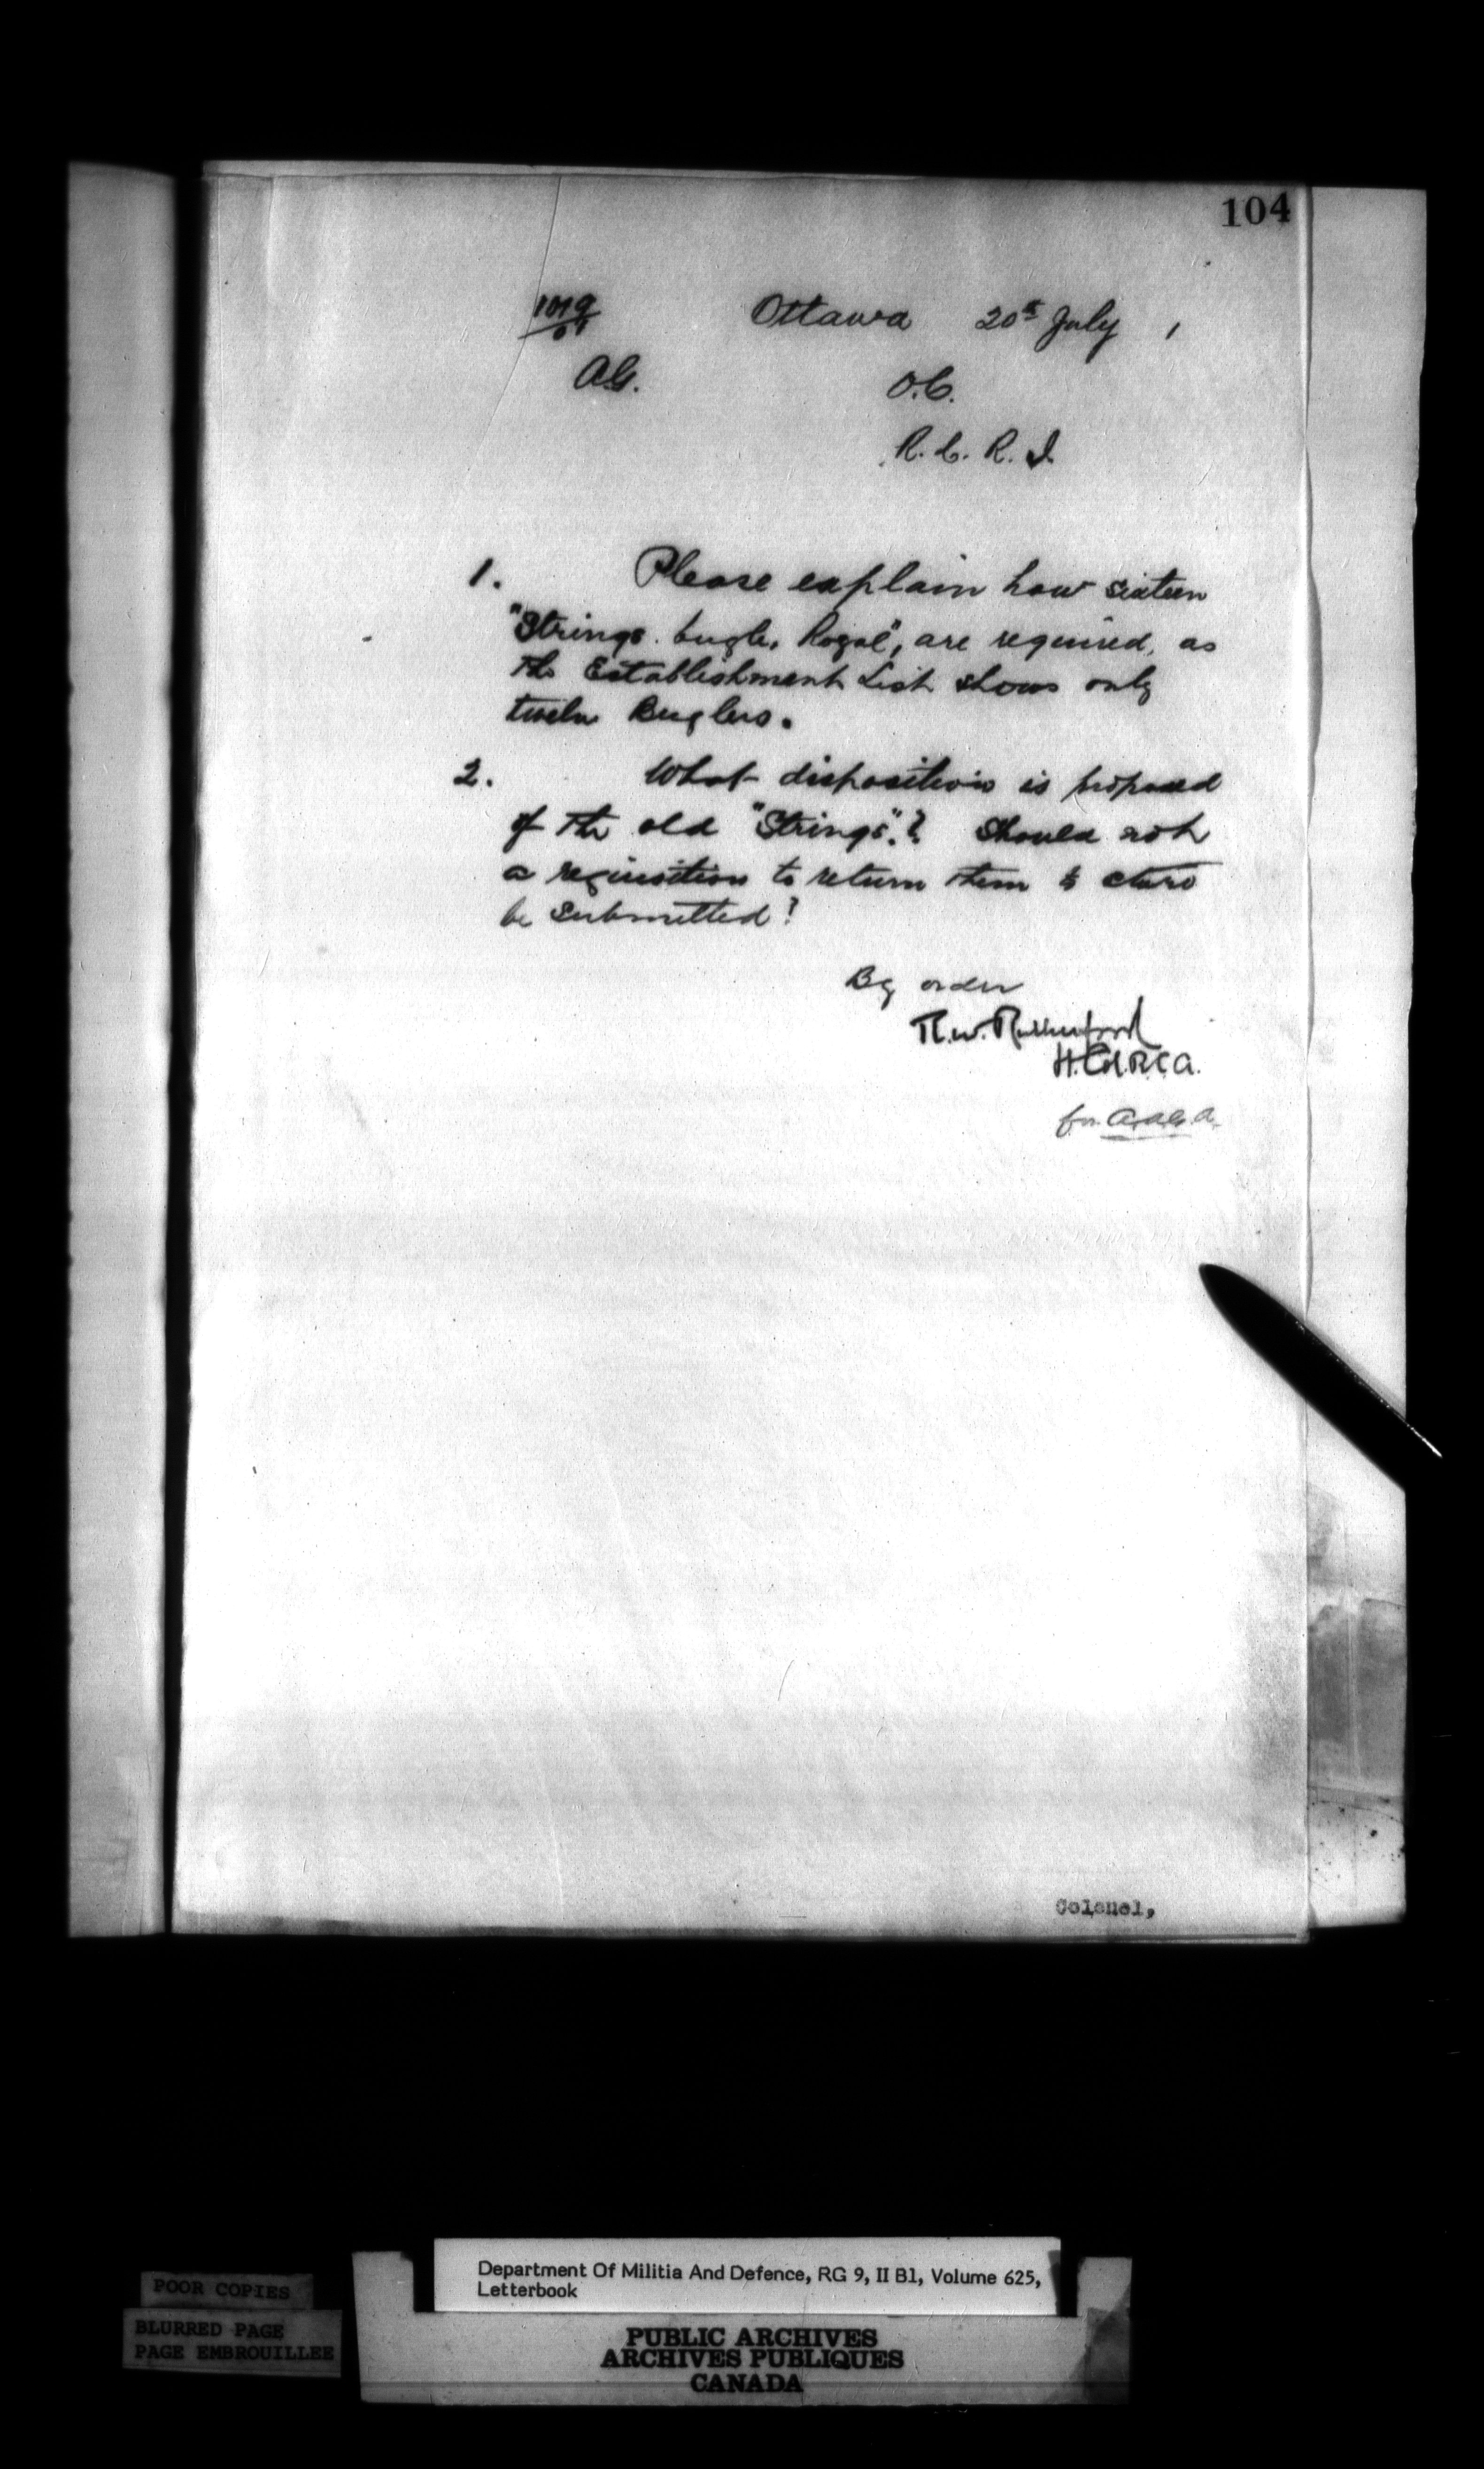 104
1019/01 Ottawa 20th July 1
A.G. O.C.
R.C.R.I.
1. Please explain how sixteen
"Strings. bugle, Royal", are required, as
the Establishment List shows only
twelve Buglers.
2. What disposition is proposed
of the old "Strings".? Should not
a requisition to return them to store
be submitted?
By order
R.W. Rutherford
for A.A.G.A.
Colonel,
Department Of Militia And Defence, RG 9, II B1, Volume 625,
Letterbook
POOR COPIES
BLURRED PAGE
PAGE EMBROUILLEE
PUBLIC ARCHIVES
ARCHIVES PUBLIQUES
CANADA